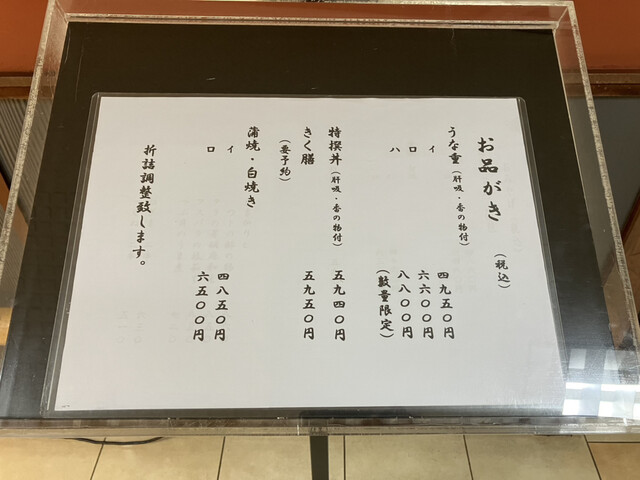 お品がき（税込）
うな重（肝吸・香の物付）
イ 四九五〇円
ロ 六六〇〇円
ハ 八八〇〇円
（数量限定）
特撰丼（肝吸・香の物付） 五九四〇円
きく膳（要予約） 五九五〇円
蒲焼・白焼き
イ 四八五〇円
ロ 六五〇〇円
折詰調整致します。